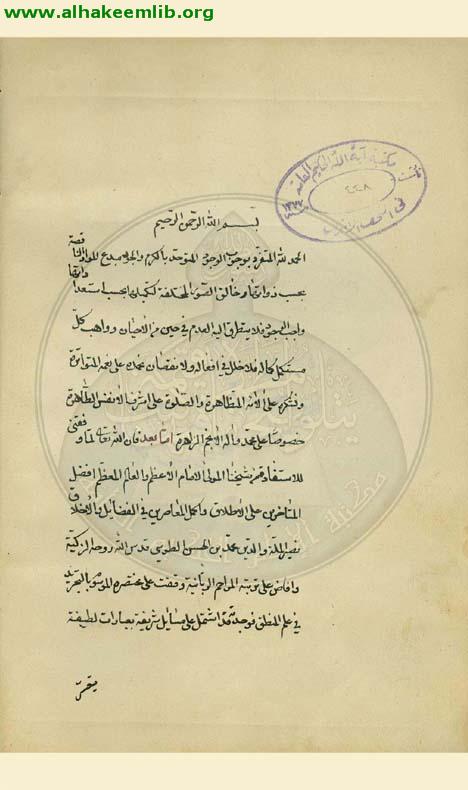 www.alhakeemlib.org
مكتبة آية الله الحكيم العامة
٤٤٠٨
بسم الله الرحمن الرحيم
الحمد لله المتفرد بوجوب الوجود المتوحد بالكرم والجود مبدع المواد
بحسب ذواتها وخالق الصور المختلفة بحسب استعداداتها
واجب الوجود فلا يتطرق اليه العدم في حين من الاحيان وواهب كل
مستكمل كماله فلا خلل في افعاله ولا نقصان نحمده على نعمه المتواترة
ونشكره على آلائه المتظاهرة والصلوة على اشرف الانفس الطاهرة
خصوصا على محمد وآله الانجم الزاهرة اما بعد فان الله تعالى لما وفقني
للاستفادة من شيخنا المولى الامام الأعظم والعالم المعظم افضل
المتأخرين على الأطلاق واكمل المعاصرين في الفضايل والأخلاق
نصير الملة والدين محمد بن الحسن الطوسي قدس الله روحه الزكية
وافاض على تربته المراحم الربانية وقفت على مختصره الموسوم بالتجريد
في علم المنطق فوجدته قد اشتمل على مسايل شريفة بعبارات لطيفة